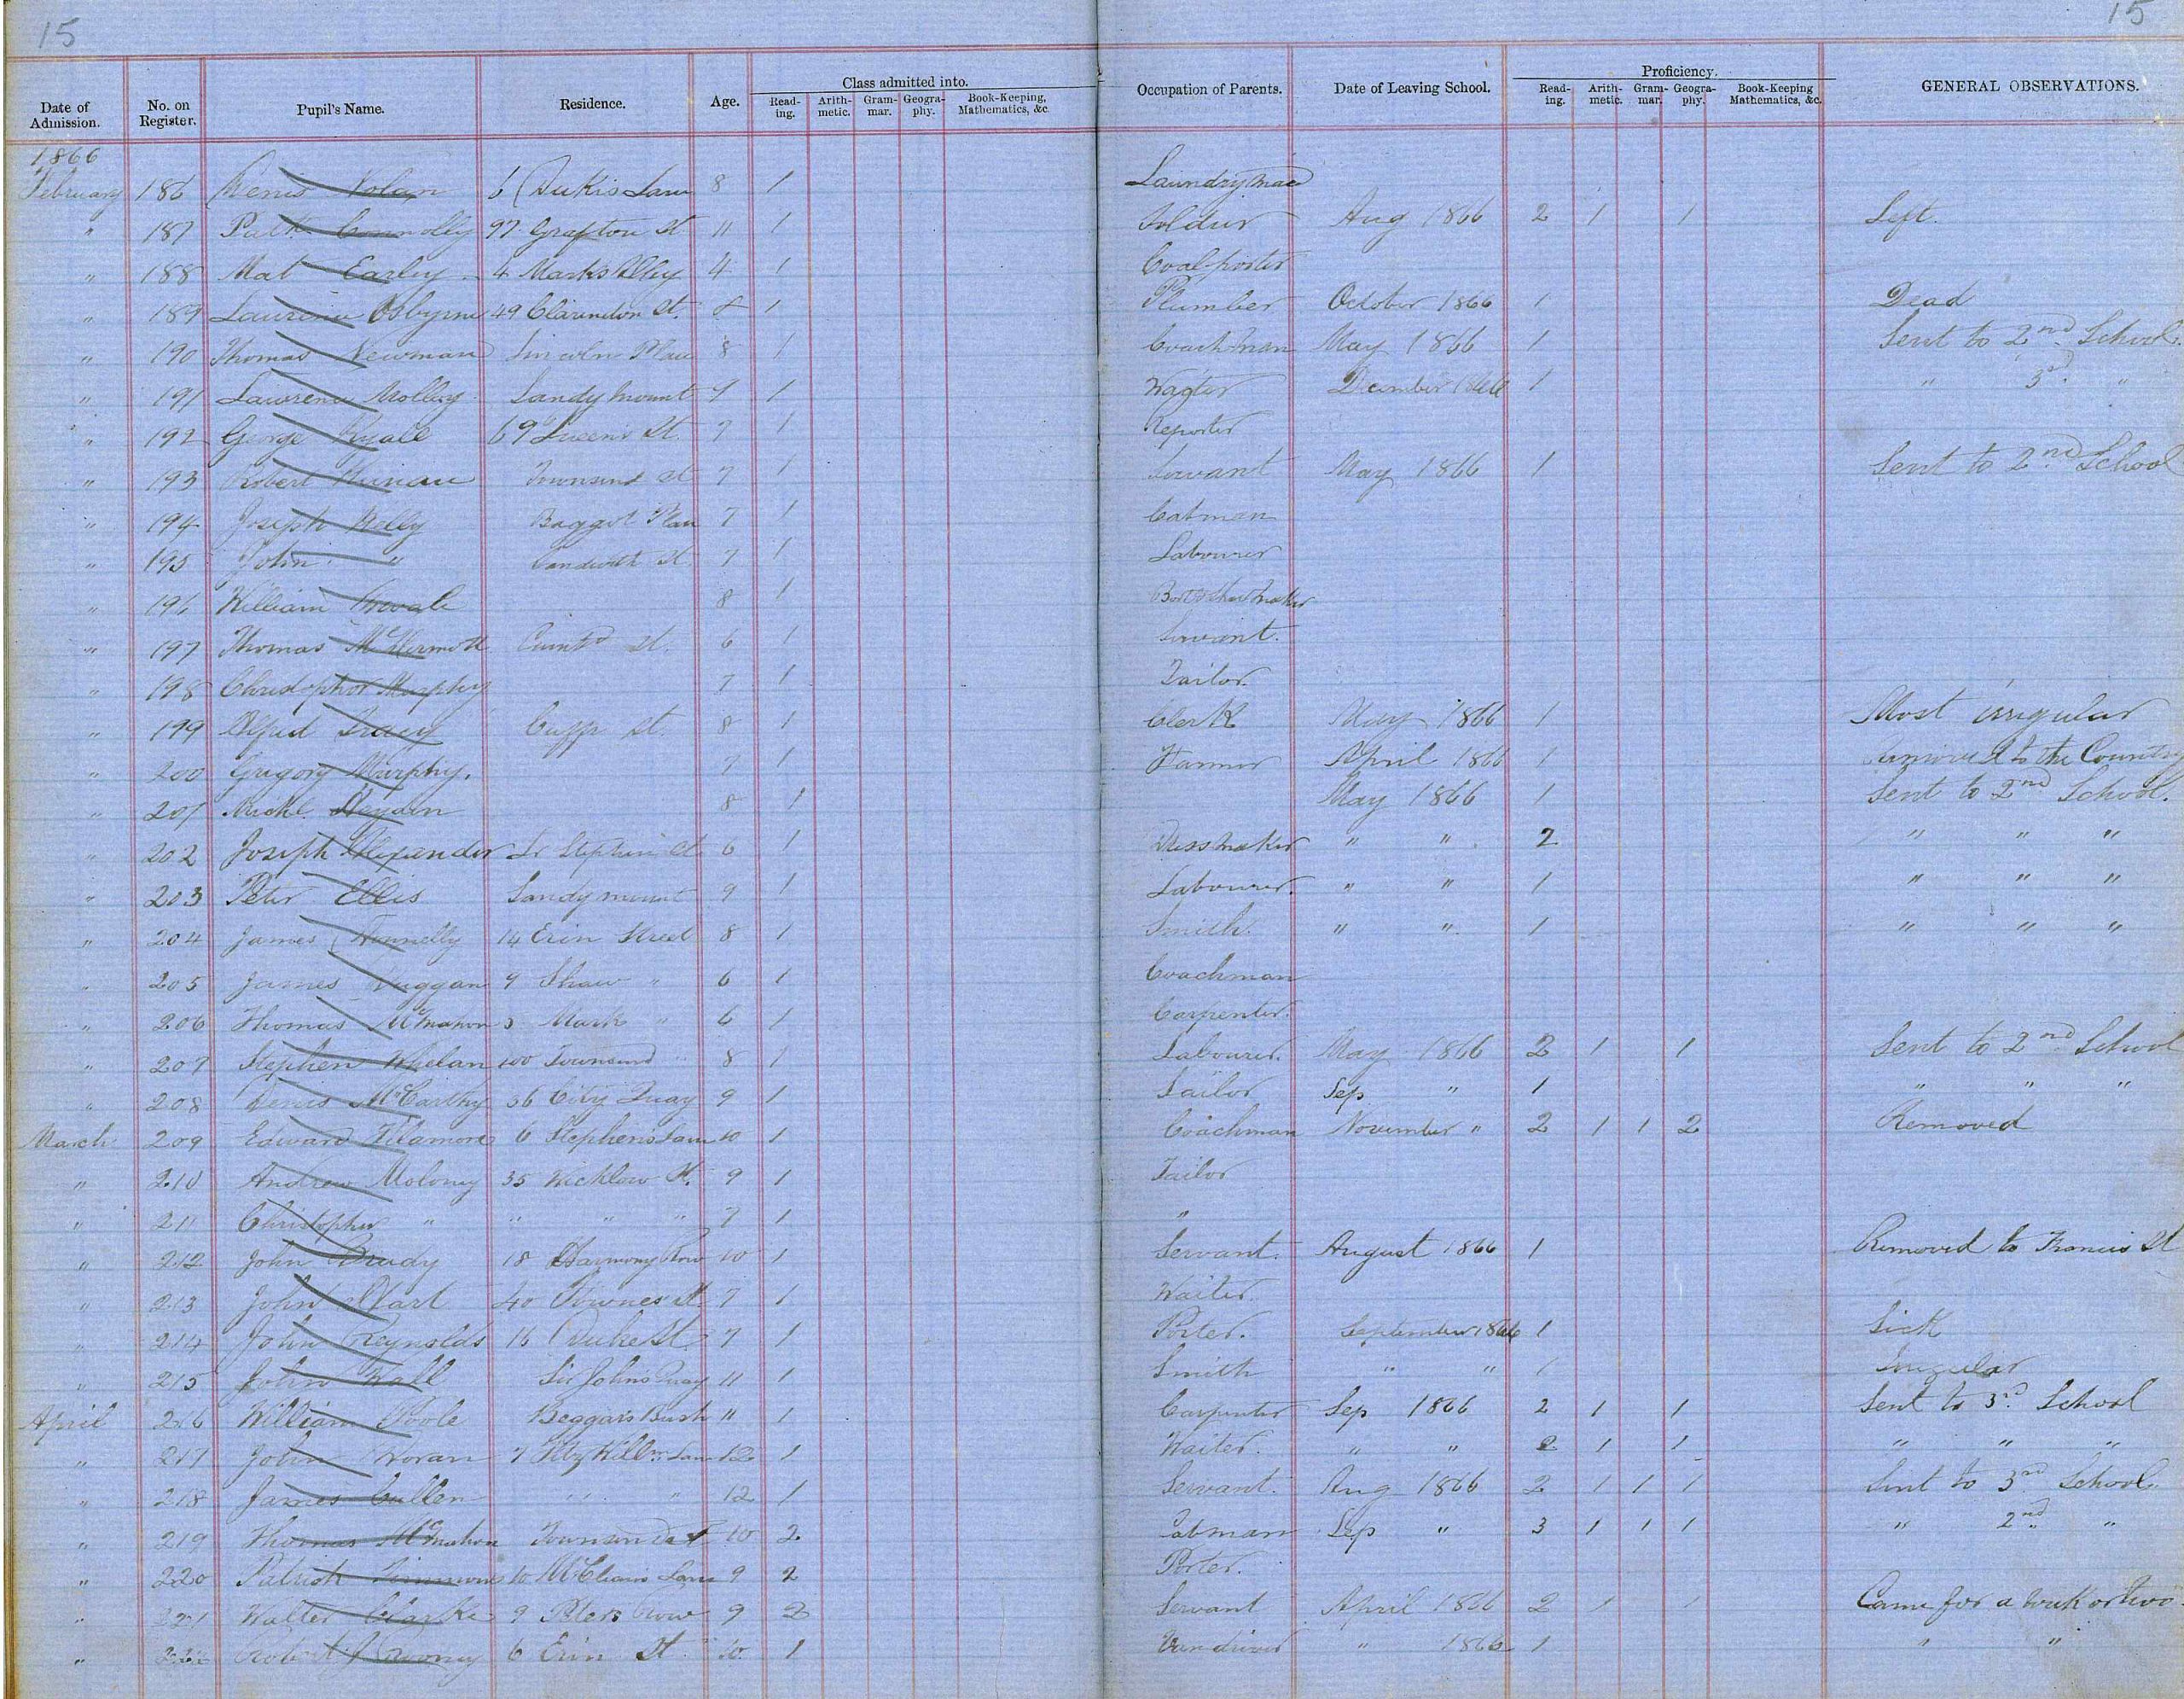 15 15
Date of Admission. No. on Register. Pupil's Name. Residence. Age. Class admitted into. Read-ing. Arith-metic. Gram-mar. Geogra-phy. Book-Keeping, Mathematics, &c. Occupation of Parents. Date of Leaving School. Proficiency. Read-ing. Arith-metic. Gram-mar. Geogra-phy. Book-Keeping Mathematics, &c. GENERAL OBSERVATIONS.
1866
February 186 Denis Nolan 6 Dukis Lane 8 1 Laundrymaid
" 187 Patk Connolly 97 Grafton St 11 1 Soldier Aug 1866 2 1 1 Left.
" 188 Mat Earley 4 Marks Alley 4 1 Coalporter
" 189 Laurence Osbyrne 49 Clarendon St. 8 1 Plumber October 1866 1 Dead
" 190 Thomas Newman Lincoln Place 8 1 Coachman May 1866 1 Sent to 2nd School.
" 191 Lawrence Molloy Sandymount 1 December 1866 1 " 3rd "
" 192 George 69 Queens St. 7 1 Reporter
" 193 Robert Townsend St 7 1 Servant May 1866 1 Sent to 2nd School
" 194 Joseph Kelly Baggot Place 7 1 Cabman
" 195 John " 7 1 Labourer
" 196 William 8 1 Boot & Shoe Maker
" 197 Thomas McDermott St. 6 1 Servant.
" 198 Christopher Murphy 7 1 Tailor.
" 199 Alfred Tracy Cuffe St. 8 1 Clerk May 1866 1 Most irregular
" 200 Gregory Murphy. 7 1 Farmer April 1866 1 Removed to the Country
" 201 Michl Heydon 8 1 May 1866 1 Sent to 2nd School.
" 202 Joseph Alexander Lr Stephen St 6 1 Dressmaker " " 2 " " "
" 203 Peter Ellis Sandymount 9 1 Labourer. " " 1 " " "
" 204 James Donnelly 14 Erin Street 8 1 Smith. " " 1 " " "
" 205 James Duggan 9 Shaw " 6 1 Coachman
" 206 Thomas McMahon 3 Mark " 6 1 Carpenter.
" 207 Stephen Whelan 100 Townsend " 8 1 Labourer. May 1866 2 1 1 Sent to 2nd School
" 208 Denis McCarthy 36 City Quay 9 1 Sailor Sep " 1 " " "
March 209 Edward 6 Stephens Lane 10 1 Coachman November " 2 1 1 2 Removed
" 210 Andrew Molony 35 Wicklow St. 9 1 Tailor
" 211 Christopher " " " " 7 1 "
" 212 John Brady 18 Harmony Row 10 1 Servant. August 1866 1 Removed to Francis St
" 213 John Hart 40 Townes St. 7 1 Waiter.
" 214 John Reynolds 16 Duke St. 7 1 Porter. September 1866 1 Sick
" 215 John Wall Sir Johns Quay 11 1 Smith " " 1 Irregular
April 216 William Poole Beggars Bush 11 1 Carpenter Sep 1866 2 1 1 Sent to 3rd School
" 217 John Horan 7 FitzWillm Lane 12 1 Waiter. " " 2 1 1 " " "
" 218 James Cullen " " 12 1 Servant. Aug 1866 2 1 1 1 Sent to 3rd School.
" 219 Thomas McMahon Townsend St 10 2 Cabman Sep " 3 1 1 1 " 2nd "
" 220 Patrick Timmons 10 McCleans Lane 9 2 Porter.
" 221 Walter Clarke 9 Peters Row 9 2 Servant April 1866 2 1 1 Came for a week or two.
" 222 Robert 6 Erin St 10 1 Van driver " 1866 1 " "